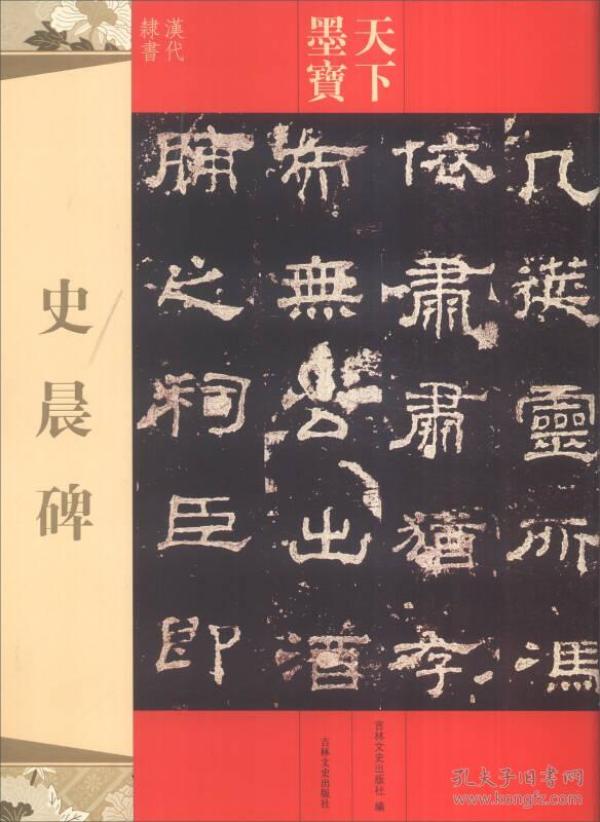 天下
墨寶
漢代
隸書
史晨碑
几筵靈所馮
依肅肅猶存
而無公出酒
脯之祠臣即
吉林文史出版社 編
吉林文史出版社
孔夫子旧书网
www.kongfz.com